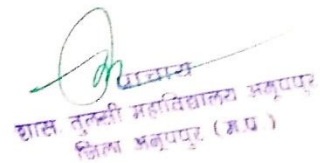 प्राचार्य
शास. तुलसी महाविद्यालय अनूपपुर
जिला अनूपपुर ( म.प्र )